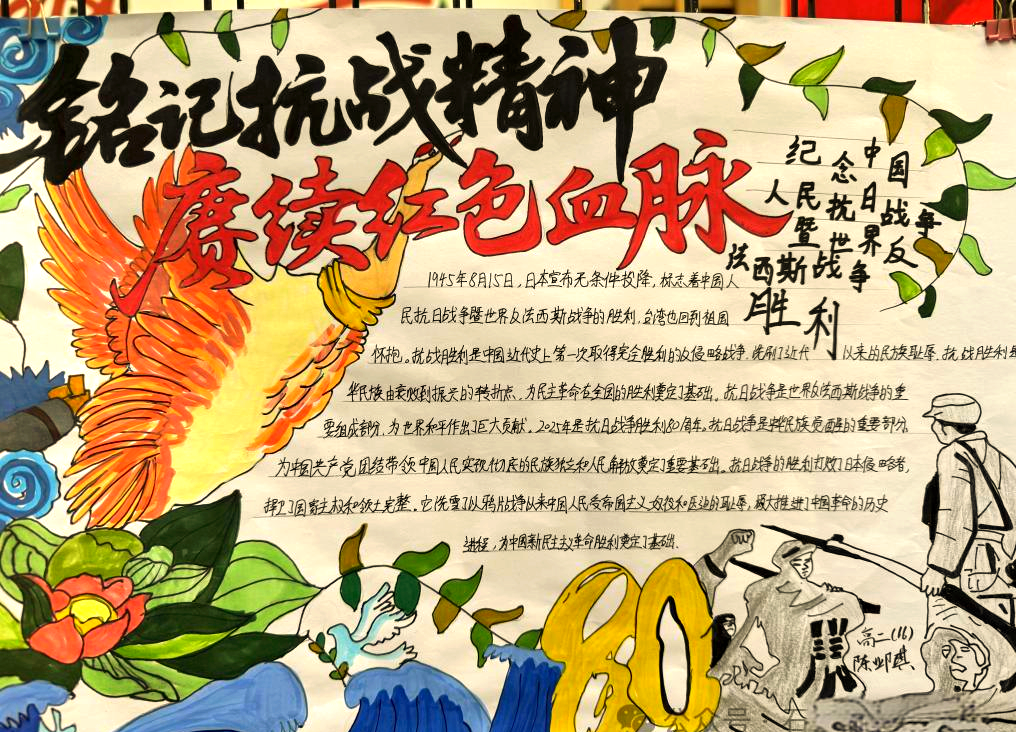 铭记抗战精神
赓续红色血脉
纪念中国
人民抗日战争
暨世界反
法西斯战争
胜利
1945年8月15日，日本宣布无条件投降，标志着中国人
民抗日战争暨世界反法西斯战争的胜利，台湾也回到祖国
怀抱。抗战胜利是中国近代史上第一次取得完全胜利的反侵略战争，洗刷了近代以来的民族耻辱。抗战胜利是
华民族由衰败到振兴的转折点，为民主革命在全国的胜利奠定了基础。抗日战争是世界反法西斯战争的重
要组成部分，为世界和平作出了巨大贡献。2025年是抗日战争胜利80周年。抗日战争是民族觉醒的重要部分，
为中国共产党团结带领中国人民实现彻底的民族独立和人民解放奠定了重要基础。抗日战争的胜利打败了日本侵略者，
捍卫了国家主权和领土完整。它洗雪了以鸦片战争以来中国人民受帝国主义奴役和压迫的耻辱，极大推进了中国革命的历史
进程，为中国新民主主义革命胜利奠定了基础。
80
高二(16)
陈邺琪
公众号